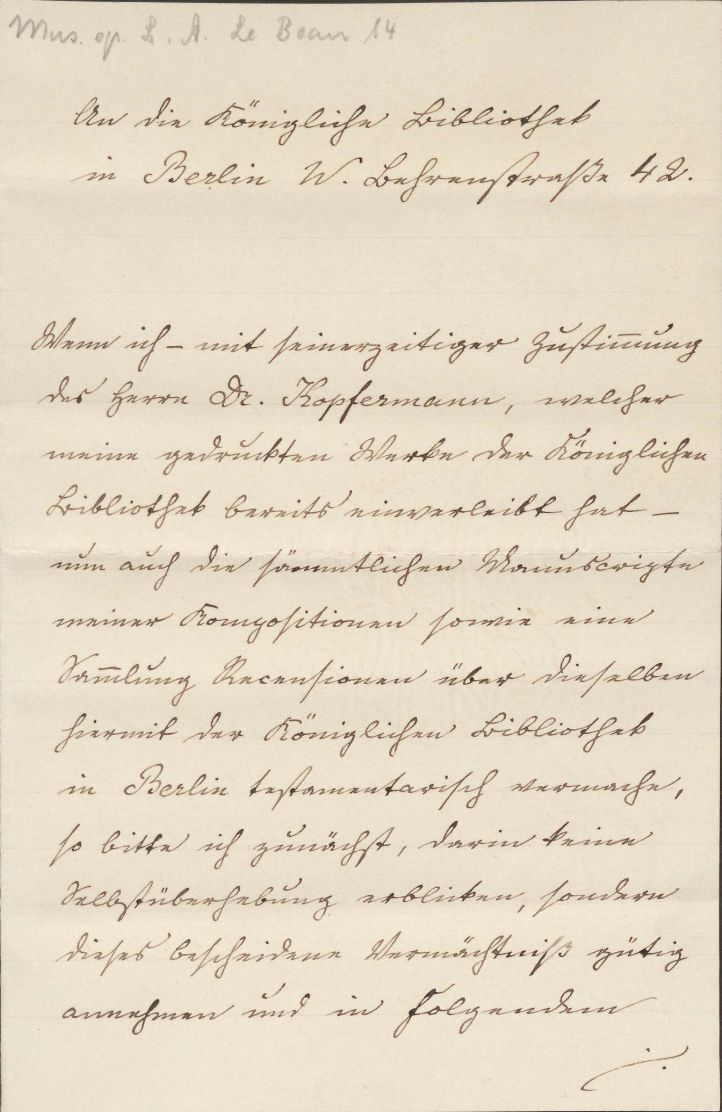 Mus. ep. L. A. Le Beau 14
An die Königliche Bibliothek
in Berlin W. Behrenstraße 42.
Wenn ich – mit seinerzeitiger Zustim̅ung
des Herrn Dr. Kopfermann, welcher
meine gedruckten Werke der Königlichen
Bibliothek bereits einverleibt hat –
nun auch die sämmtlichen Manuscripte
meiner Kompositionen sowie eine
Sam̅lung Recensionen über dieselben
hiermit der Königlichen Bibliothek
in Berlin testamentarisch vermache,
so bitte ich zunächst, darin keine
Selbstüberhebung erblicken, sondern
dieses bescheidene Vermächtniß gütig
annehmen und in Folgendem